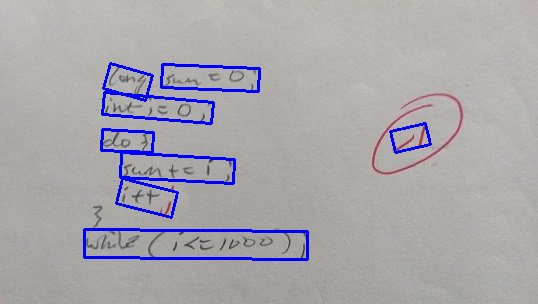 long sum = 0;
int i = 0;
do {
sum += i;
-1
i++;
}
while (i <= 1000);